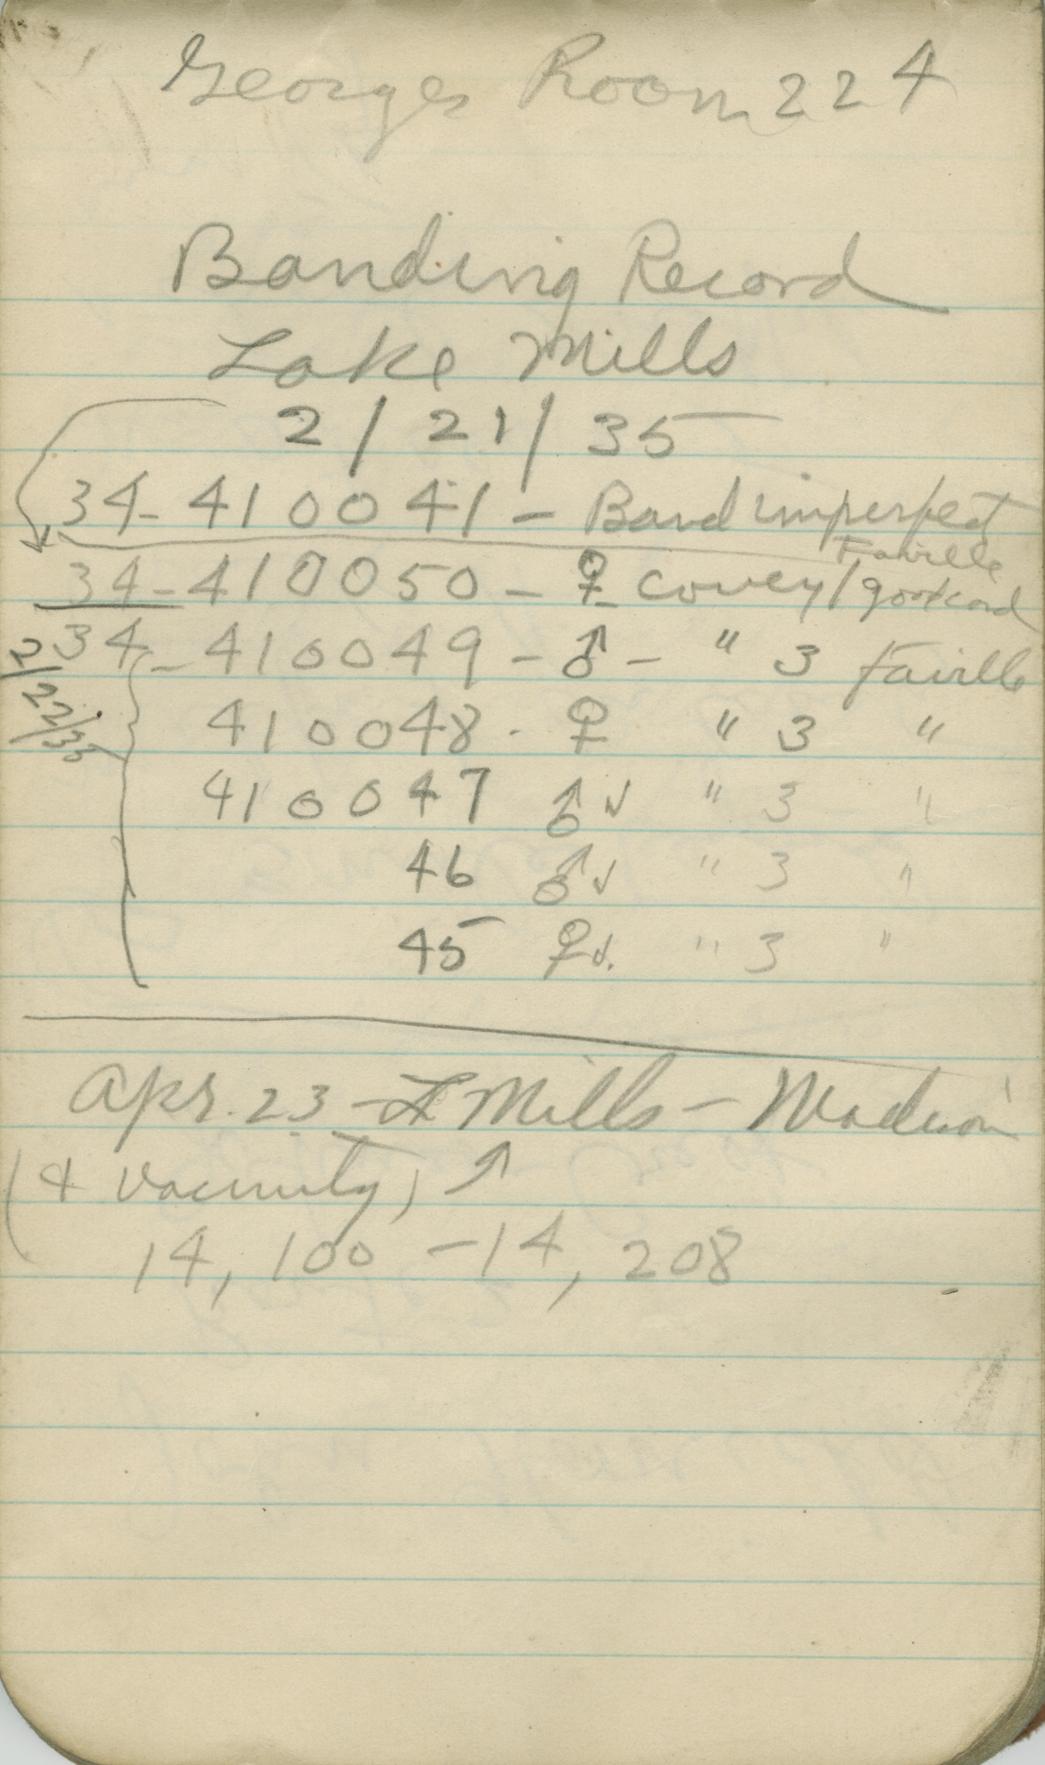 Georges Room 224
Banding Record
Lake Mills
2/21/35
34-410041 - Band imperfect
Faville
34-410050 - ♀ covey 1
34-410049 - ♂ - " 3 Faville
2/22/35
410048 - ♀ " 3 "
410047 ♂ ✓ " 3 "
46 ♂ ✓ " 3 "
45 ♀ ✓ " 3 "
Apr. 23 - L Mills - Madison
(& vacinity) ↗
14,100 - 14,208